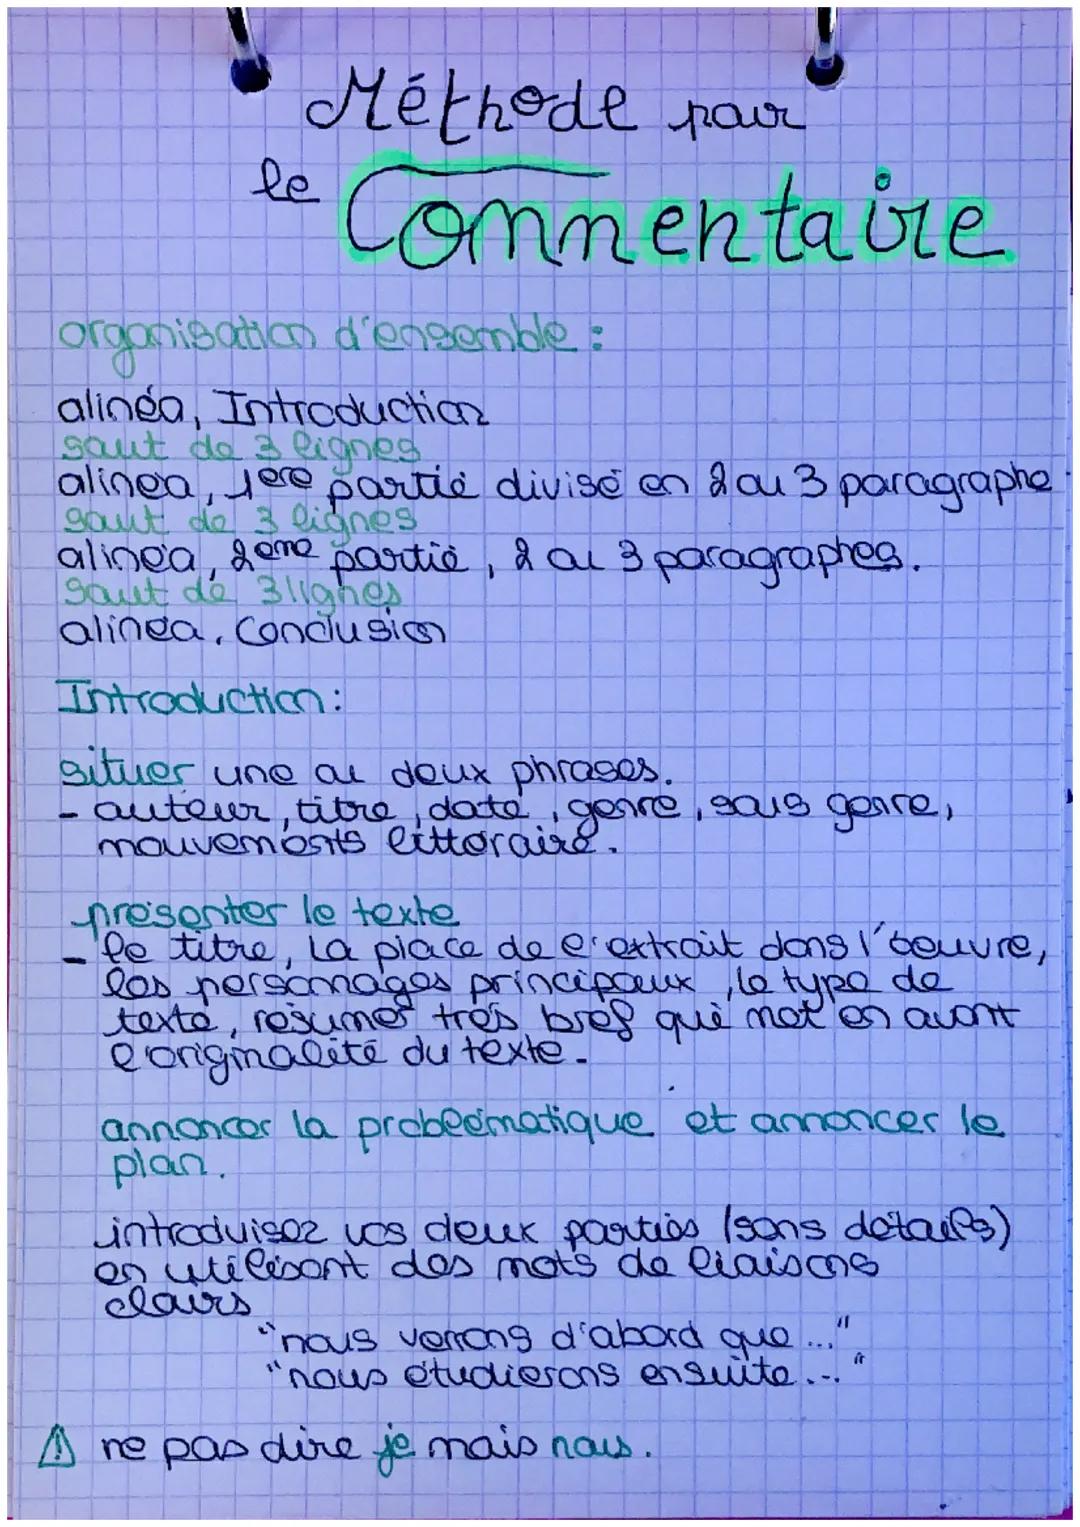 Méthode pour
le Commentaire
organisation d'ensemble :
alinéa, Introduction
saut de 3 lignes
alinéa, 1ere partie divisé en 2 ou 3 paragraphe
saut de 3 lignes
alinéa, 2eme partie, 2 ou 3 paragraphes.
saut de 3 lignes
alinéa, Conclusion
Introduction :
situer une ou deux phrases.
- auteur, titre, date, genre, sous genre,
mouvements littéraire.
présenter le texte
- le titre, la place de l'extrait dans l'oeuvre,
les personnages principaux, le type de
texte, résumer très bref qui met en avant
l'originalité du texte.
annoncer la problématique et annoncer le
plan.
introduisez vos deux parties (sans détails)
en utilisant des mots de liaisons
clairs
"nous verrons d'abord que ..."
"nous étudierons ensuite ..."
⚠ ne pas dire je mais nous.